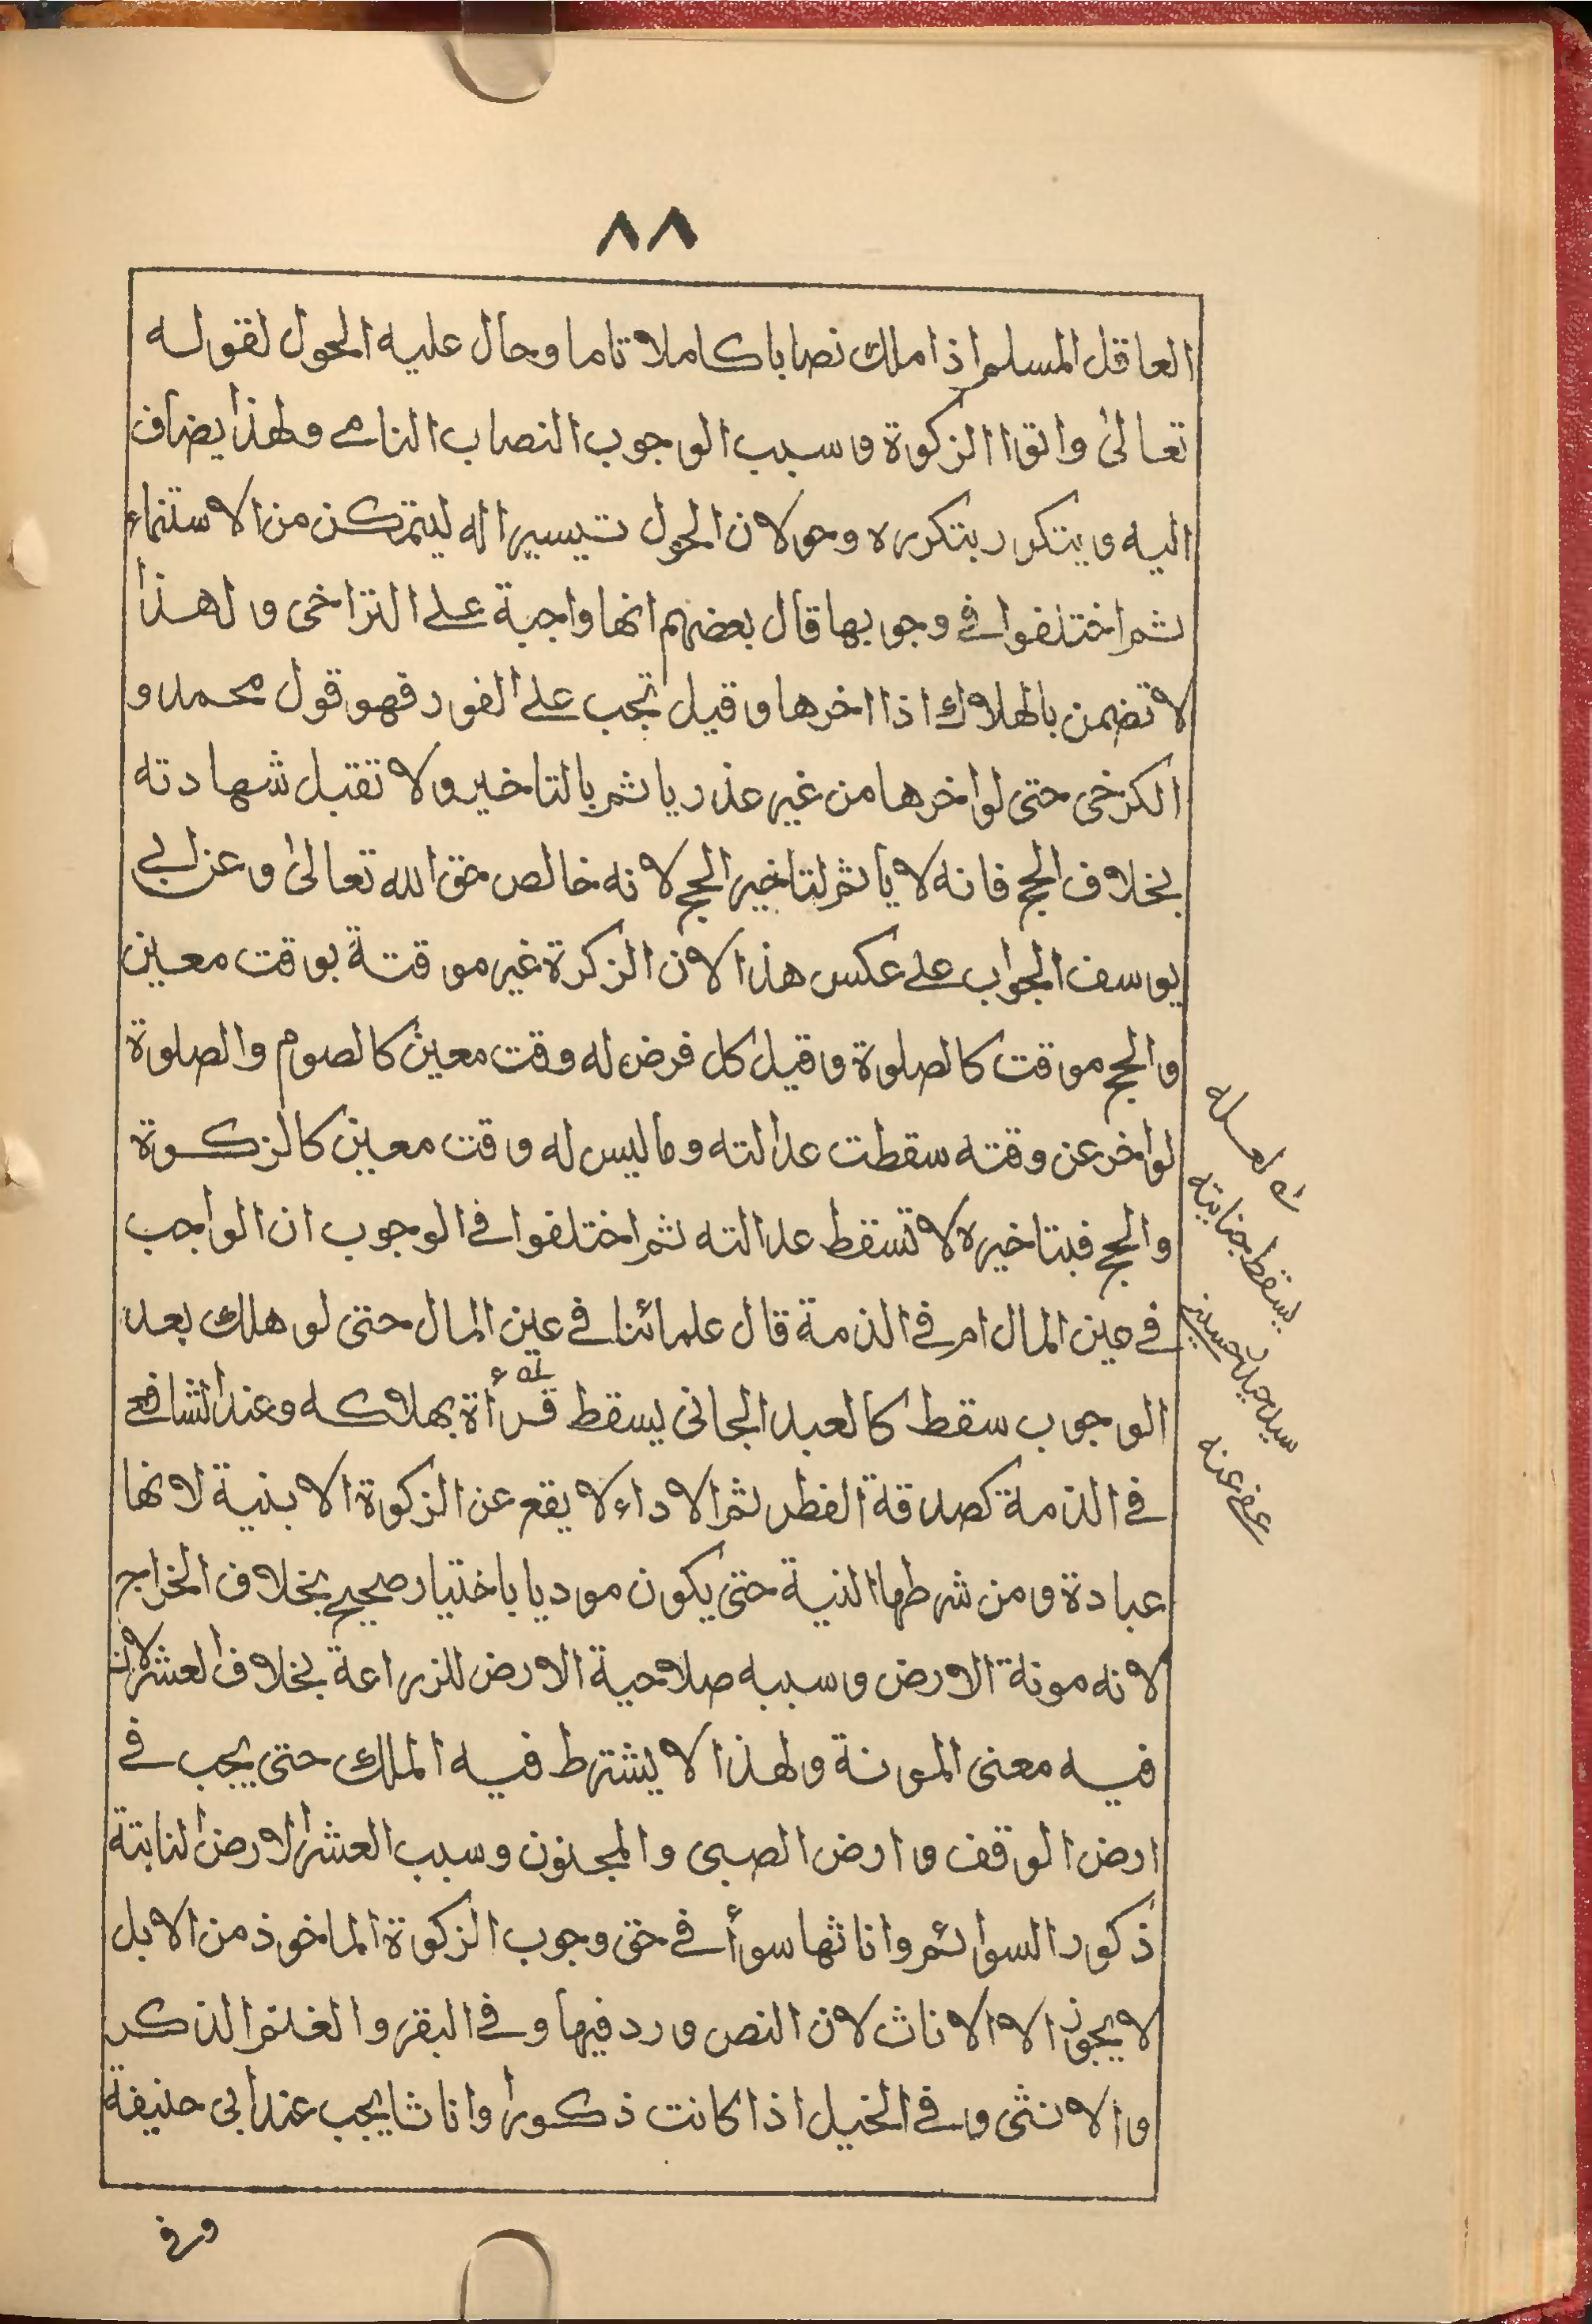 ٨٨
العاقل المسلم اذا ملك نصابا كاملا تاما وحال عليه الحول لقوله
تعالىٰ واتوا الزكوة وسبب الوجوب النصاب النامے ولهذا يضاف
اليه ويتكرر بتكرره وحولان الحول تيسيرا له ليتمكن من الاستنماء
ثم اختلفوا فے وجوبها قال بعضهم انها واجبة علے التراخی ولهذا
لا تضمن بالهلاك اذا اخرها وقيل تجب علے الفور فهو قول محمد و
الكرخی حتی لو اخرها من غير عذر ياثم بالتاخير ولا تقبل شهادته
بخلاف الحج فانه لا يأثم لتاخير الحج لانه خالص حق الله تعالىٰ وعن ابے
يوسف الجواب علے عكس هذا لان الزكرة غير موقتة بوقت معين
والحج موقت كالصلوة وقيل كل فرض له وقت معين كالصوم والصلوة
لو اخر عن وقته سقطت عدالته وما ليس له وقت معين كالزكوة
والحج فبتاخيره لا تسقط عدالته ثم اختلفوا فے الوجوب ان الواجب
فے عين المال ام فے الذمة قال علمائنا فے عين المال حتی لو هلك بعد
الوجوب سقط كالعبد الجانی يسقط قرأة بهلاكه وعند الشافعے
فے الذمة كصدقة الفطر ثم الاداء لا يقع عن الزكوة الا بنية لانها
عبادة ومن شرطها النية حتی يكون موديا باختيار صحيح بخلاف الخراج
لانه مونة الارض وسببه صلاحية الارض للزراعة بخلاف العشر لان
فيه معنی المونة ولهذا لا يشترط فيه الملك حتی يجب فے
ارض الوقف وارض الصبی والمجنون وسبب العشر الارض النابتة
ذكور السوائم واناثها سوأ فے حق وجوب الزكوة الماخوذ من الابل
لا يجوز الا الاناث لان النص ورد فيها وفے البقر والغنم الذكر
والانثی وفے الخيل اذا كانت ذكورا واناثا يجب عند ابی حنيفة
وفے
يسقط جنايته
عفی عنه